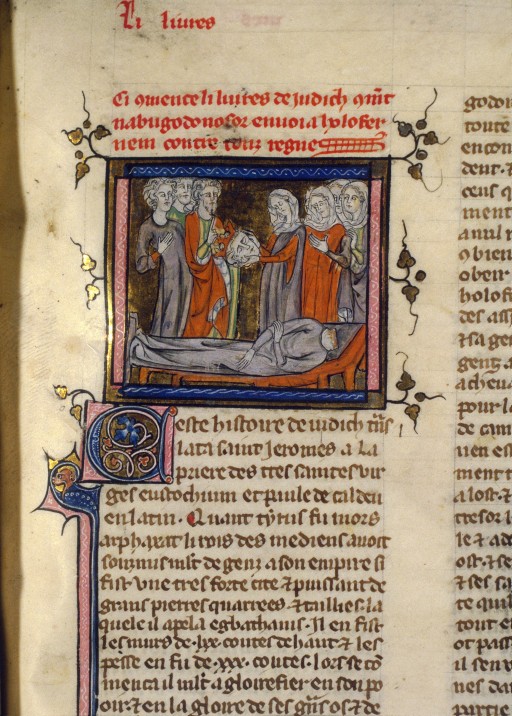 Li liures
Ci qmence li liures de iudich qnt
nabugodonosor enuoia holofer
nem contre tout regne
Ceste histoire de iudich
lata saint Jeromes a la
priere des tres saintes vir
ges eustochium et paule de caldeu
en latin. Quant tyrus fu mors
arphaxat li rois des mediens auoit
mlt de genz a son empire si
fist vne tres forte cite & puissant de
grans pierres quarrees & taillies. la
quele il apela egbathanis. Il en fist
les murs de .lxx. coutes de haut & les
pesse en fu de .xxx. coutes. lors se co
menca il mlt a gloirefier en son po
oir. & en la gloire de ses & de
godon
toute
encon
dent. &
ceus q
ment
anul
obien
obeir
holofe
des ass
& sa gen
genz. a
acheua
pour la
de cam
uen est
ment
a lost. &
tresor
le & ade
ost. & se
& ses sa
te quil
tout e
ot pass
il sen v
nes da
partie